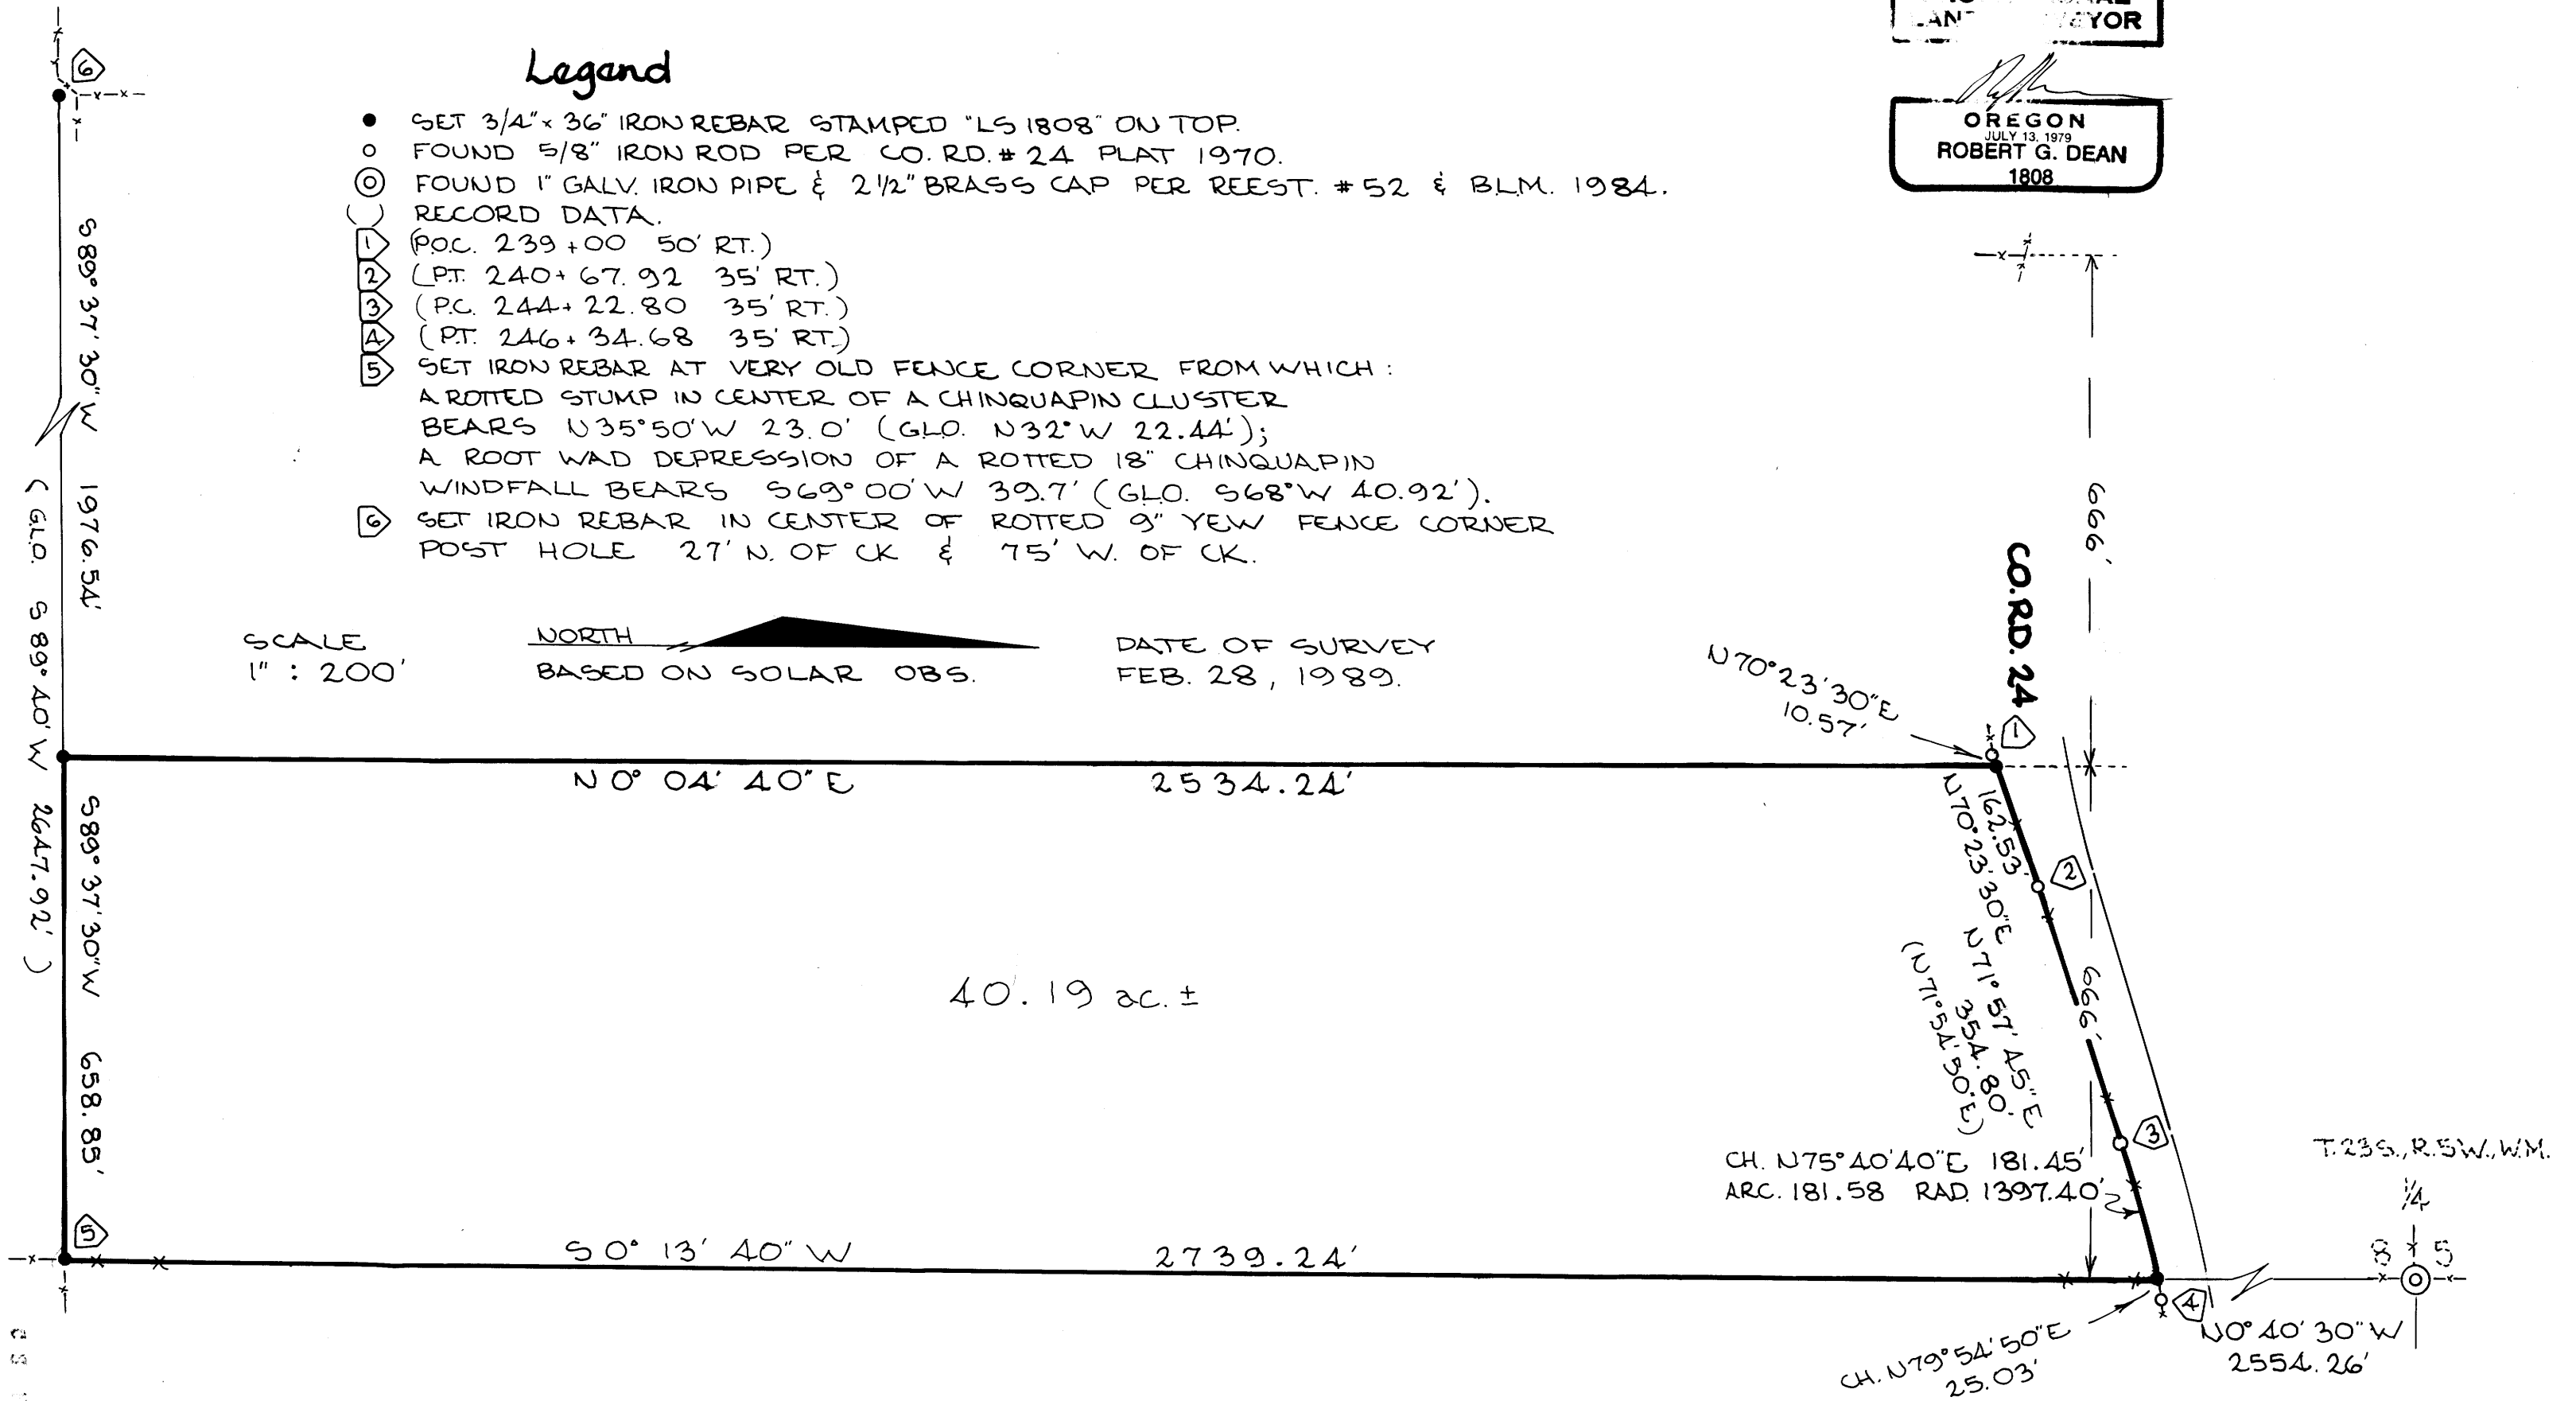 LAN
EYOR
OREGON
JULY 13, 1979
ROBERT G. DEAN
1808
Legend
SET 3/4" x 36" IRON REBAR STAMPED "LS 1808" ON TOP.
FOUND 5/8" IRON ROD PER CO. RD. # 24 PLAT 1970.
FOUND 1" GALV. IRON PIPE & 2 1/2" BRASS CAP PER REEST. # 52 & BLM. 1984.
( ) RECORD DATA.
1 (P.O.C. 239+00 50' RT.)
2 (P.T. 240+67.92 35' RT.)
3 (P.C. 244+22.80 35' RT.)
4 (P.T. 246+34.68 35' RT.)
5 SET IRON REBAR AT VERY OLD FENCE CORNER FROM WHICH:
A ROTTED STUMP IN CENTER OF A CHINQUAPIN CLUSTER
BEARS N35°50'W 23.0' (G.L.O. N32°W 22.44');
A ROOT WAD DEPRESSION OF A ROTTED 18" CHINQUAPIN
WINDFALL BEARS S69°00'W 39.7' (G.L.O. S68°W 40.92').
6 SET IRON REBAR IN CENTER OF ROTTED 9" YEW FENCE CORNER
POST HOLE 27' N. OF CK & 75' W. OF CK.
SCALE
1" : 200'
NORTH
BASED ON SOLAR OBS.
DATE OF SURVEY
FEB. 28, 1989.
6
S89°37'30"W 1976.54'
(G.L.O. S89°40'W 2647.92')
S89°37'30"W 658.85'
5
N0°04'40"E 2534.24'
40.19 ac. ±
S0°13'40"W 2739.24'
N70°23'30"E
10.57'
CO. RD. 24
1
666'
162.53'
N70°23'30"E
2
N71°57'45"E
354.80'
(N71°54'30"E)
666'
3
CH. N75°40'40"E 181.45'
ARC. 181.58 RAD. 1397.40'
4
CH. N79°54'50"E
25.03'
N0°40'30"W
2554.26'
T.23S., R.5W., W.M.
1/4
8 5